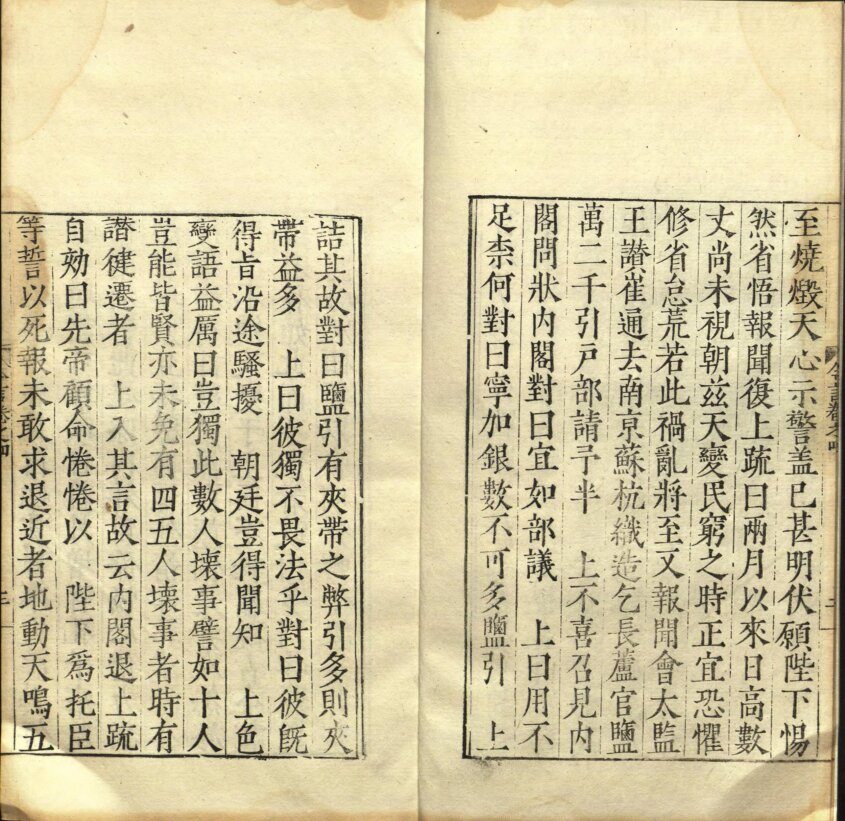 至燒燬天心示警蓋已甚明伏願陛下惕
然省悟報聞復上疏曰兩月以來日高數
丈尚未視朝茲天變民窮之時正宜恐懼
修省怠荒若此禍亂將至又報聞會太監
王讃崔通去南京蘇杭織造乞長蘆官鹽
萬二千引戸部請予半　上不喜召見内
閣問狀内閣對曰宜如部議　上曰用不
足柰何對曰寧加銀數不可多鹽引　上
詰其故對曰鹽引有夾帶之弊引多則夾
帶益多　上曰彼獨不畏法乎對曰彼旣
得旨沿途騷擾　朝廷豈得聞知　上色
變語益厲曰豈獨此數人壊事譬如十人
豈能皆賢亦未免有四五人壊事者時有
譛徤遷者　上入其言故云内閣退上疏
自劾曰先帝顧命惓惓以　陛下爲托臣
等誓以死報未敢求退近者地動天鳴五
今言卷之四